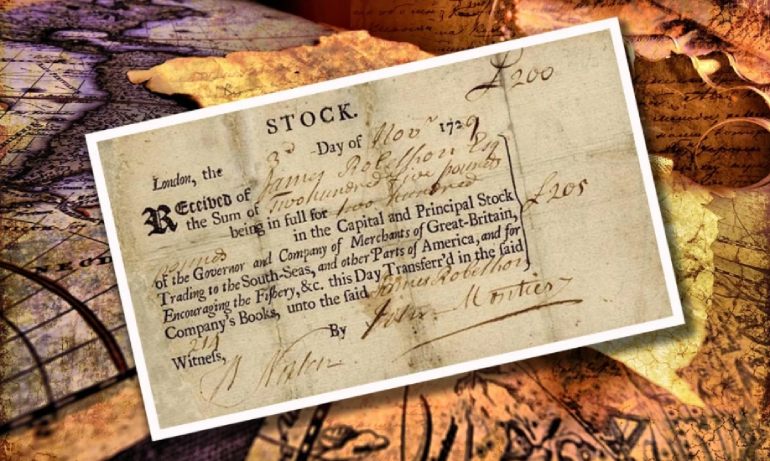 £200
STOCK.
London, the 3d Day of Novr 1729
REceived of James Robethon Esq
the Sum of Two hundred five pounds
being in full for two hundred £205
pounds in the Capital and Principal Stock
of the Governor and Company of Merchants of Great-Britain,
Trading to the South-Seas, and other Parts of America, and for
Encouraging the Fishery, &c. this Day Transferr'd in the said
Company's Books, unto the said James Robethon
By John
Witness,